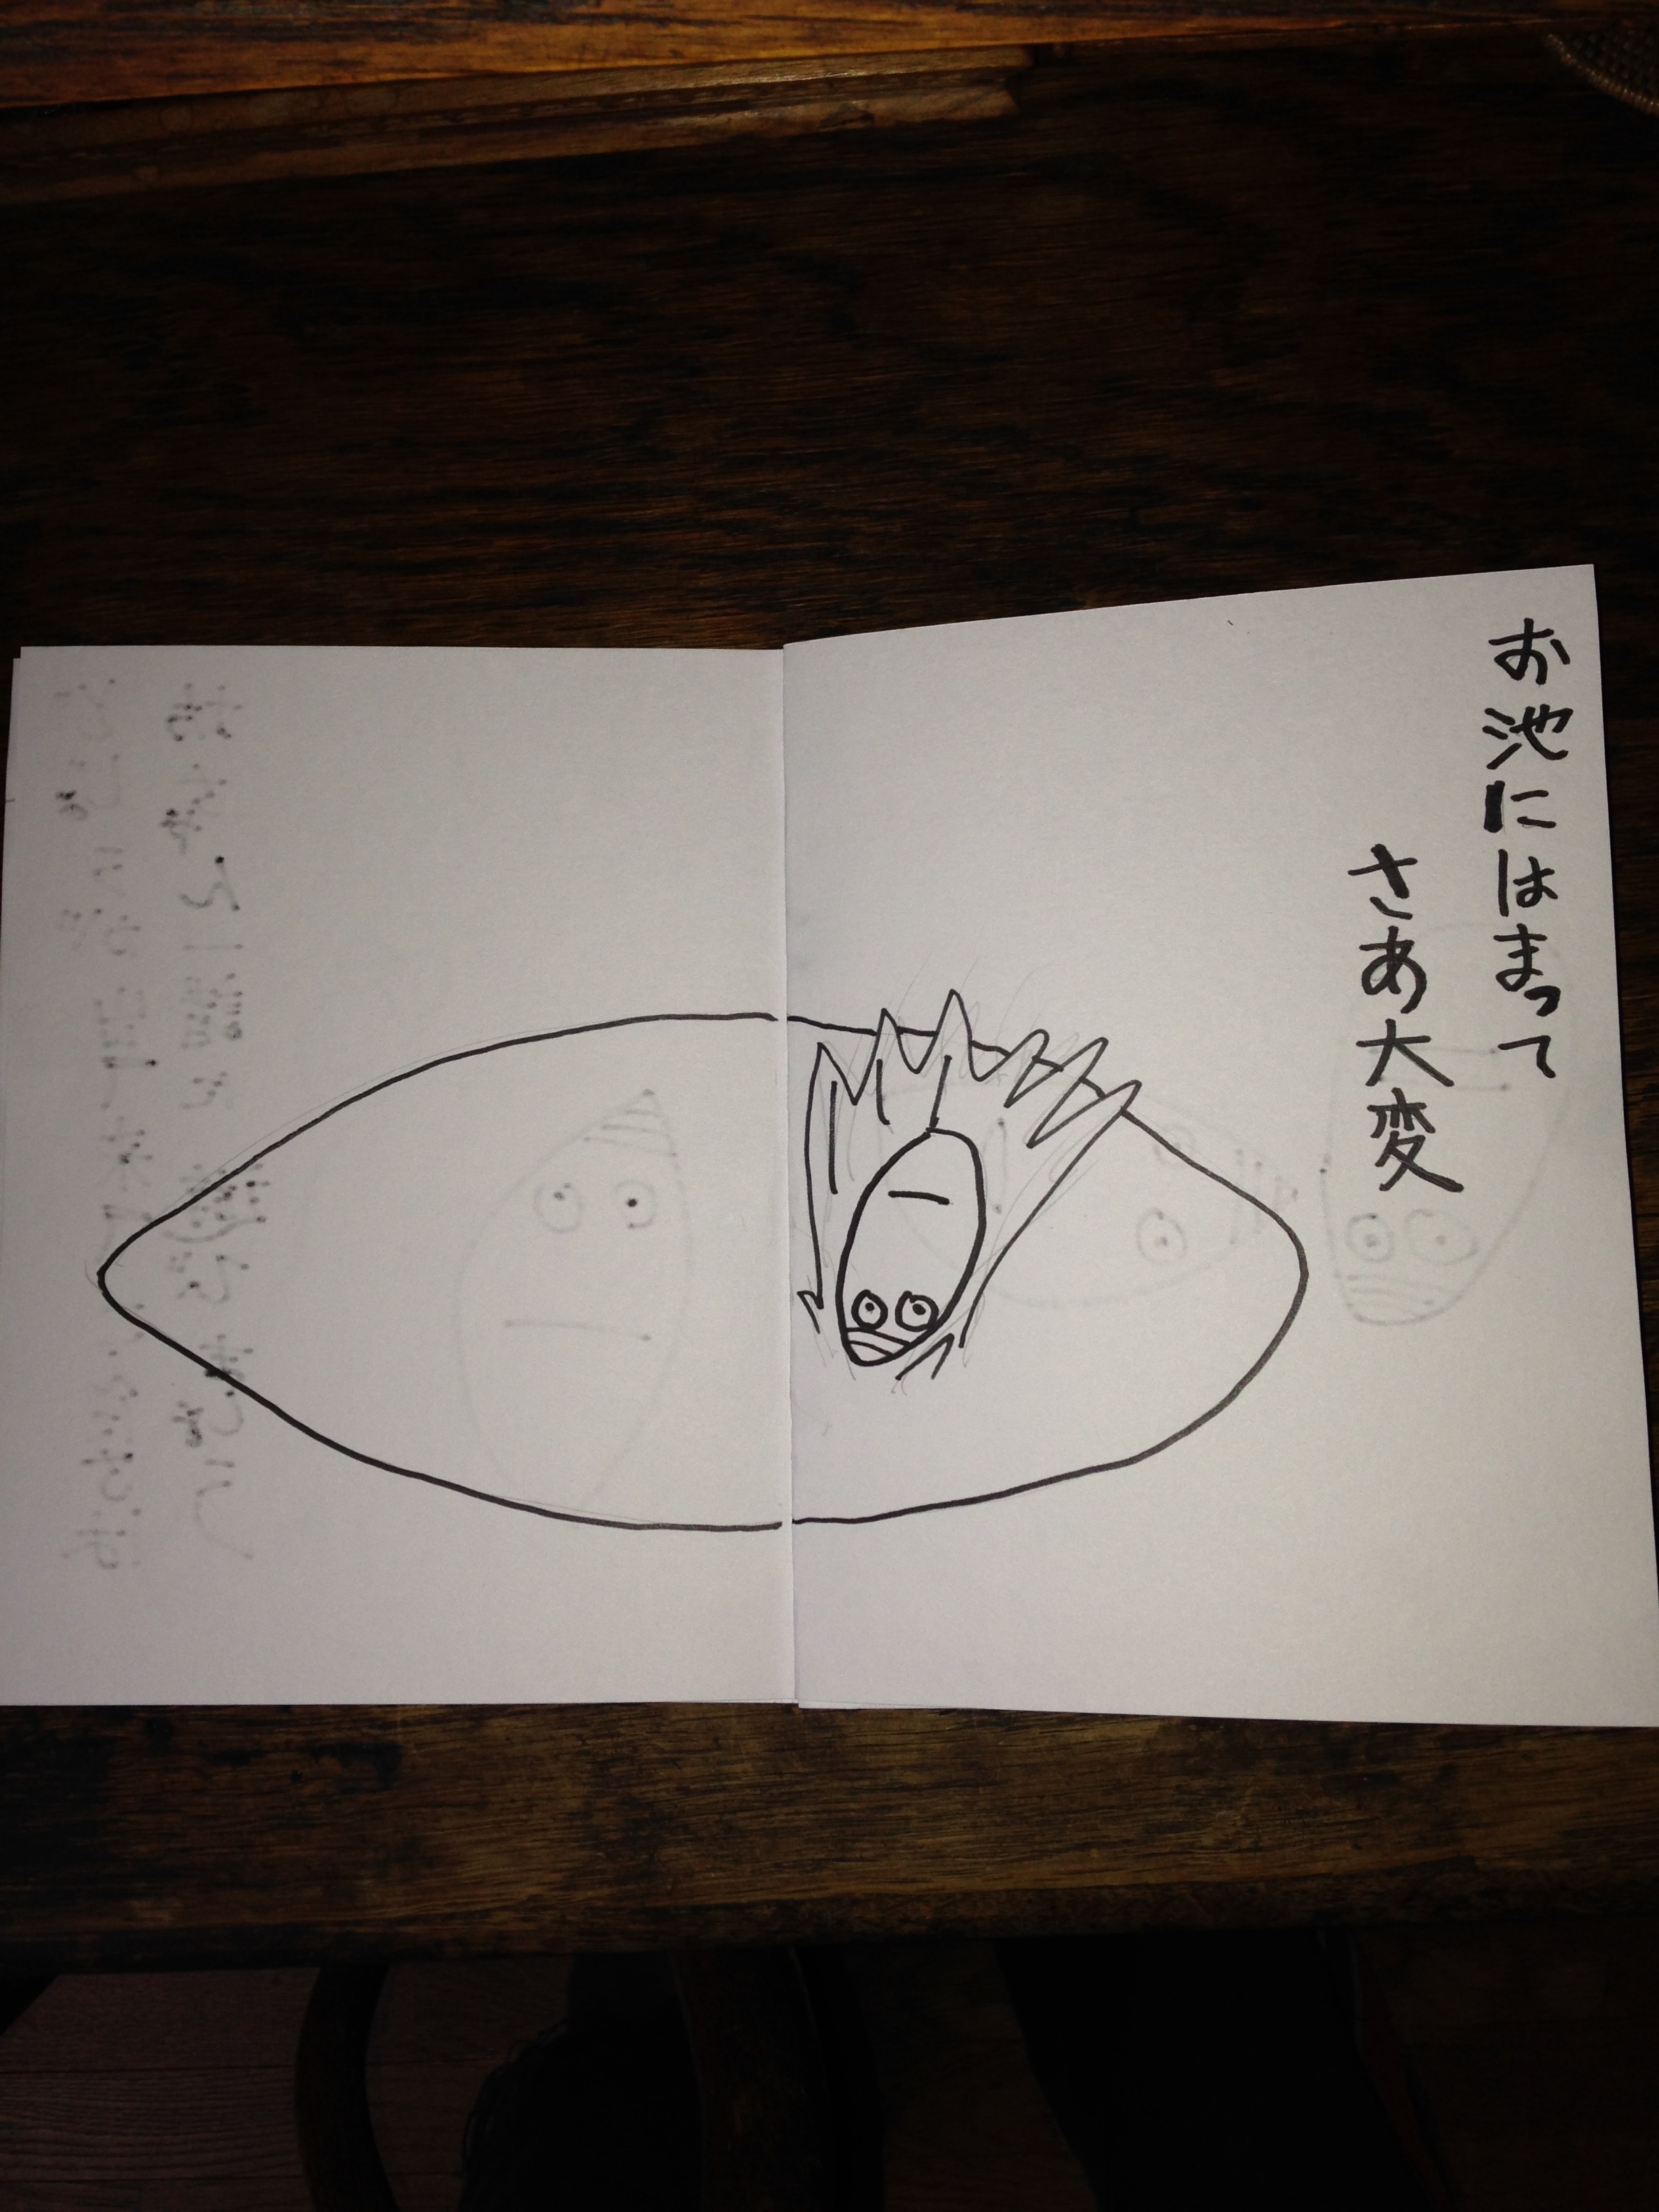 お池にはまって
さあ大変